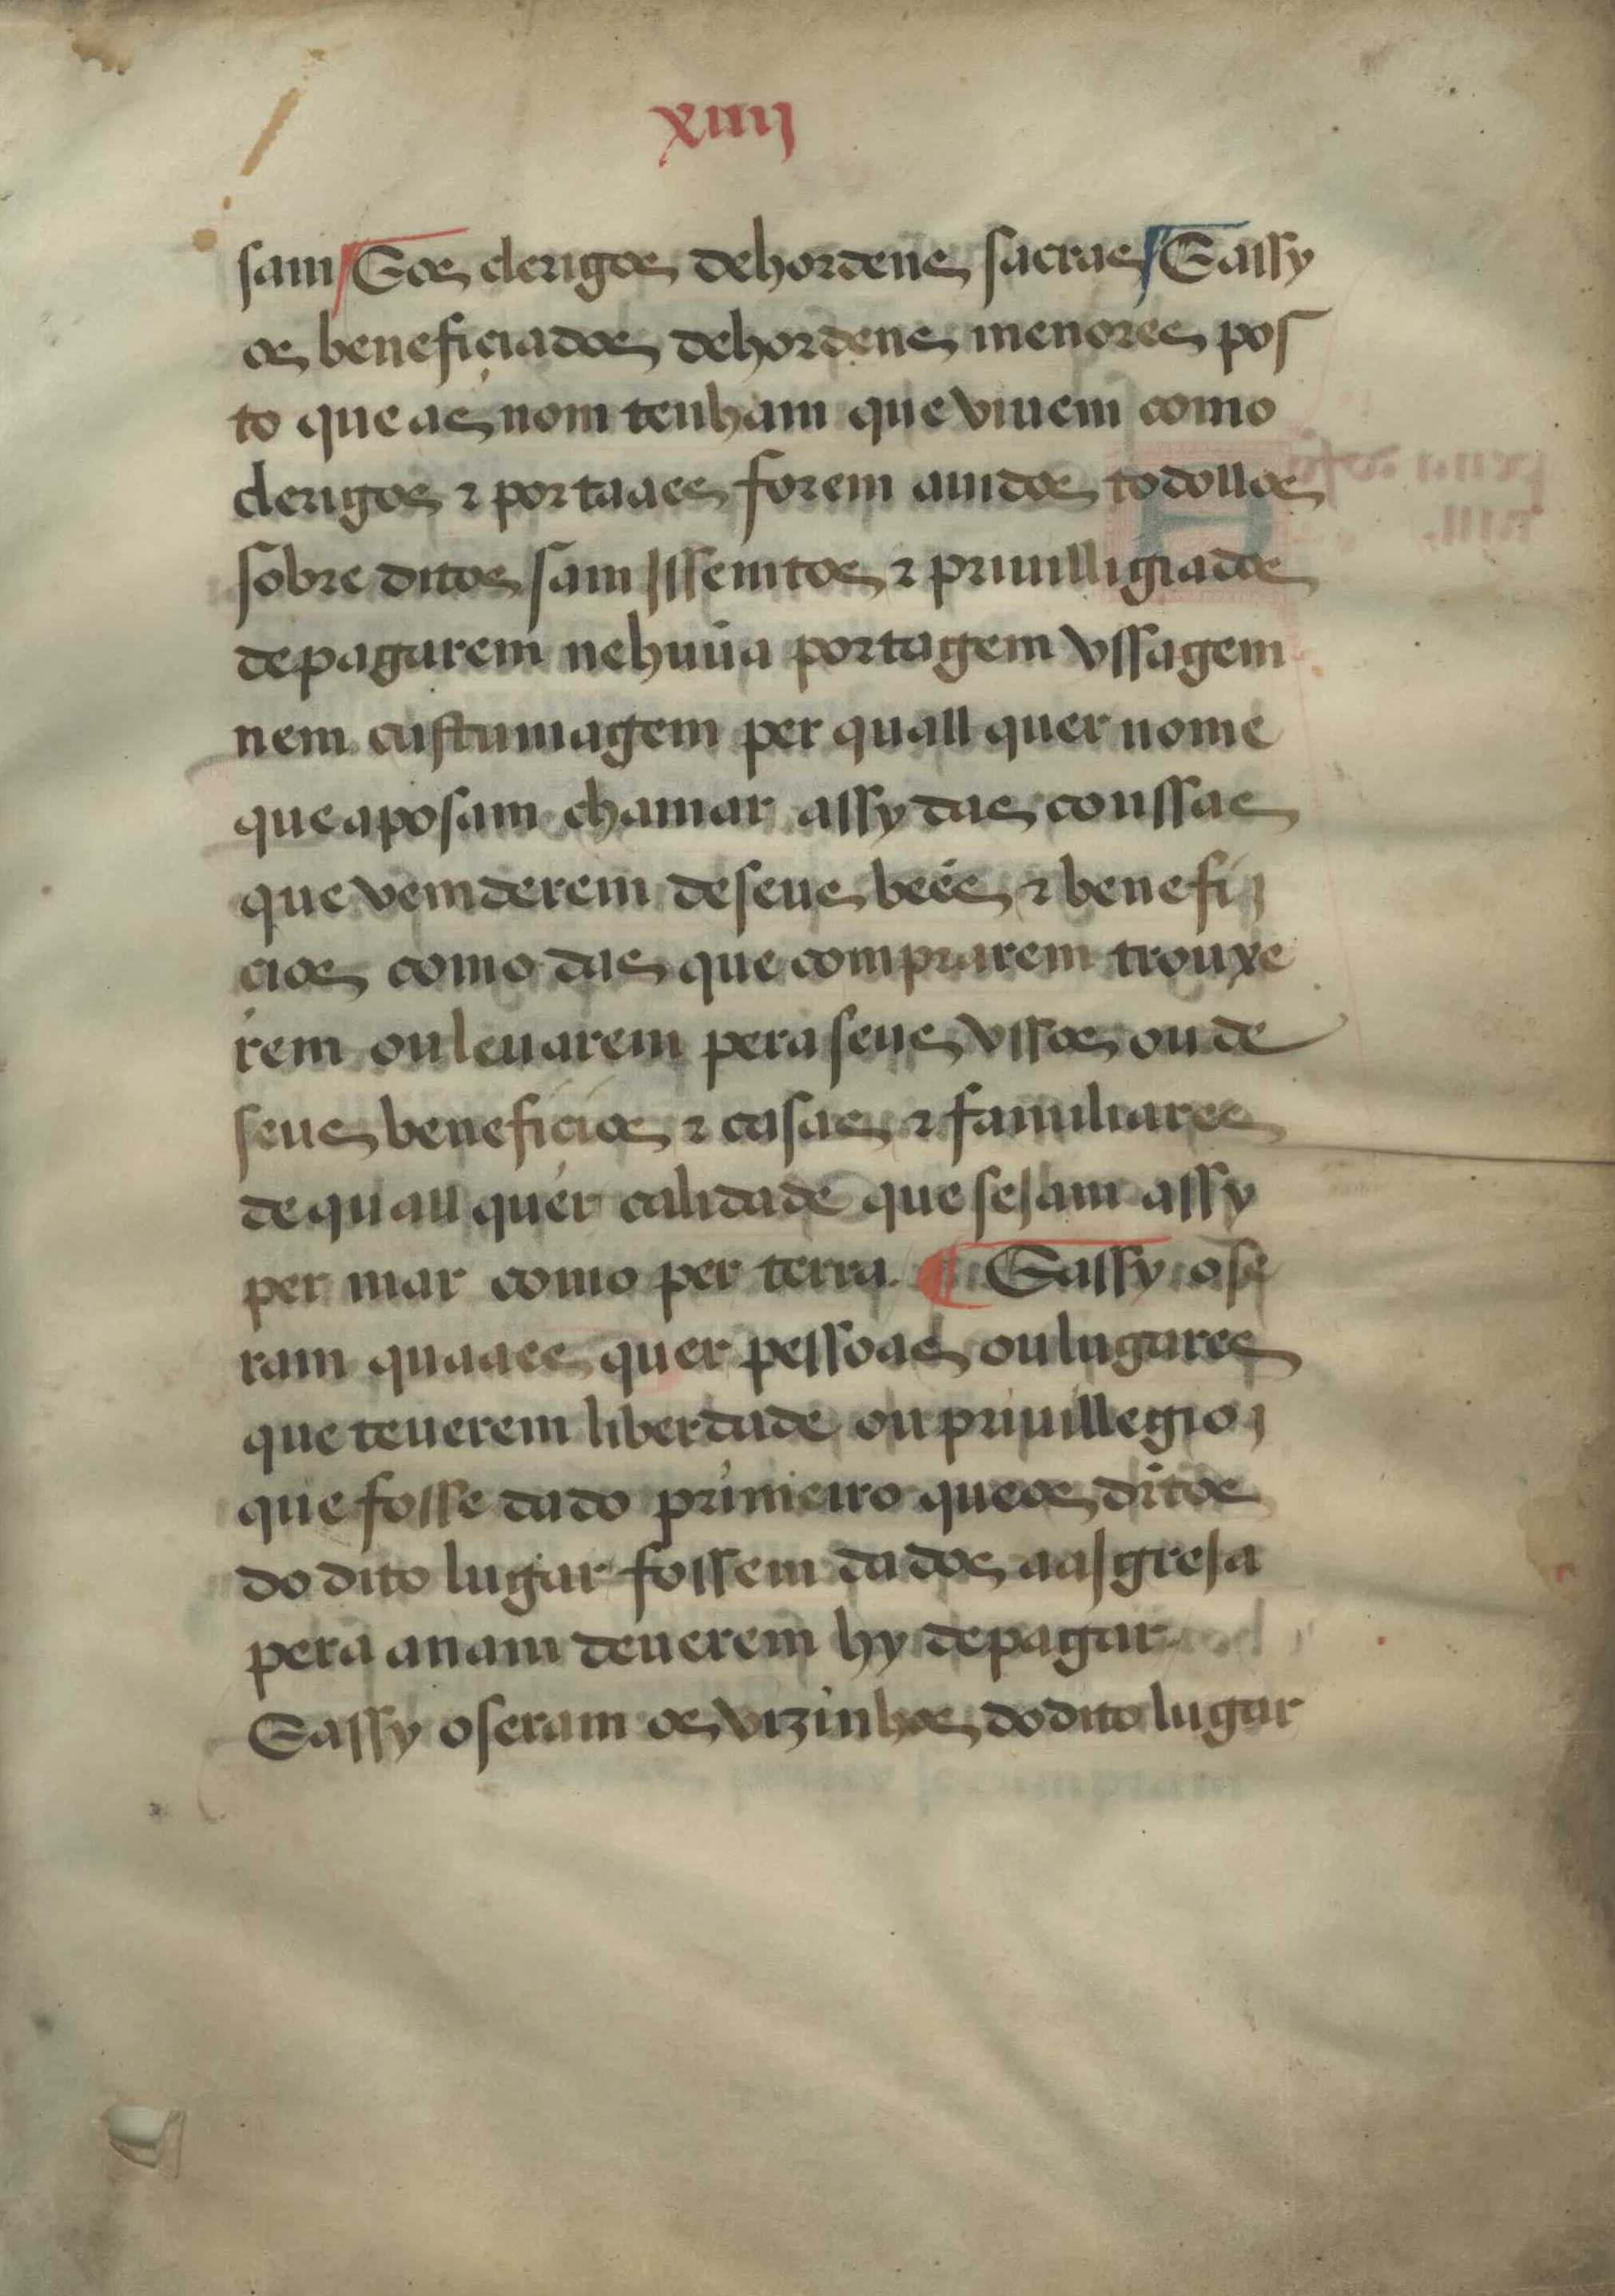 xiiij
sam Eos clerigos dehordens sacras E assy
os beneficiados dehordens menores pos
to que as nom tenham que viuem como
clerigos ⁊ por taaes forem auidos todollos
sobre ditos sam Jssemtos ⁊ priuilligiados
depagarem nehuũa portagem vssagem
nem custumagem per quall quer nome
que aposam chamar assy das coussas
que vemderem deseus beẽs ⁊ benefi
cios como das que comprarem trouxe
rem ou leuarem pera seus vssos ou de
seus beneficios ⁊ casas ⁊ familiares
dequall quer calidade que seJam assy
per mar como per terra. ¶ E assy o se
ram quaaes quer pessoas ou lugares
que teuerem liberdade ou priuillegio
que fosse dado primeiro queos ditos
do dito lugar fossem dados aaJgreJa
pera anam deuerem hy depagar
E assy o seram os vizinhos do dito lugar